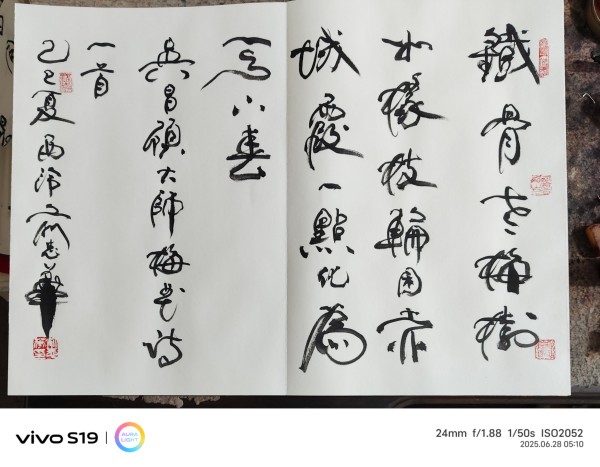 鐵骨老梅樹
枝輪囷赤
城霞一點化為
小春
吳昌碩大師梅花詩
一首
乙巳夏西泠
vivo S19
AURA LIGHT
24mm f/1.88 1/50s ISO2052
2025.06.28 05:10